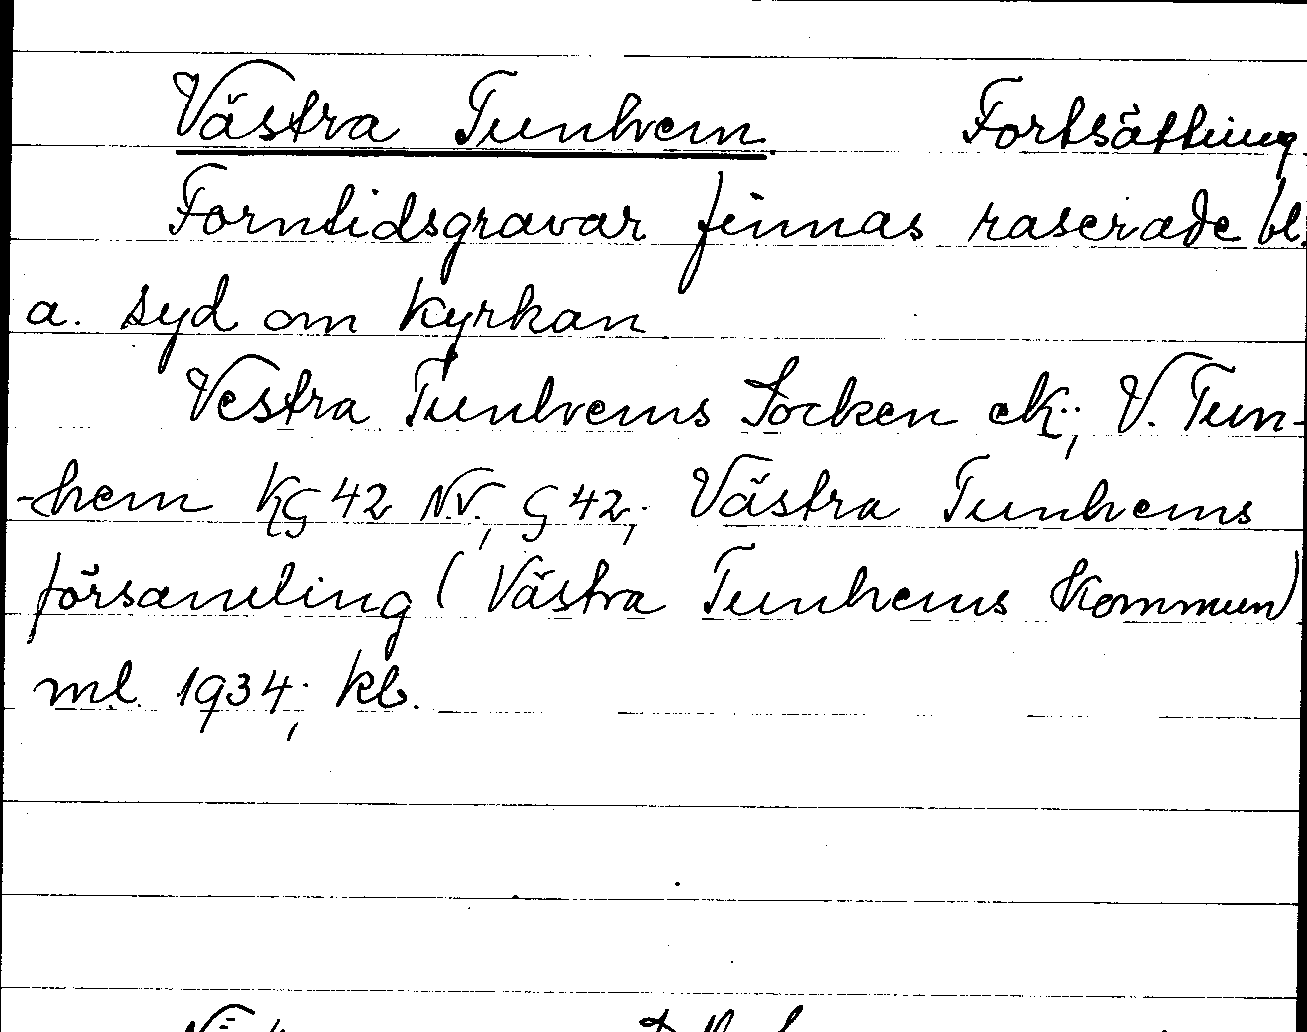 Västra Tunhem. Fortsättning.
Forntidsgravar finnas raserade bl.
a. syd om kyrkan
Vestra Tunhems Socken eK.; V. Tun-
-hem KG 42 N.V.; G 42; Västra Tunhems
församling (Västra Tunhems Kommun)
ml. 1934; kb.